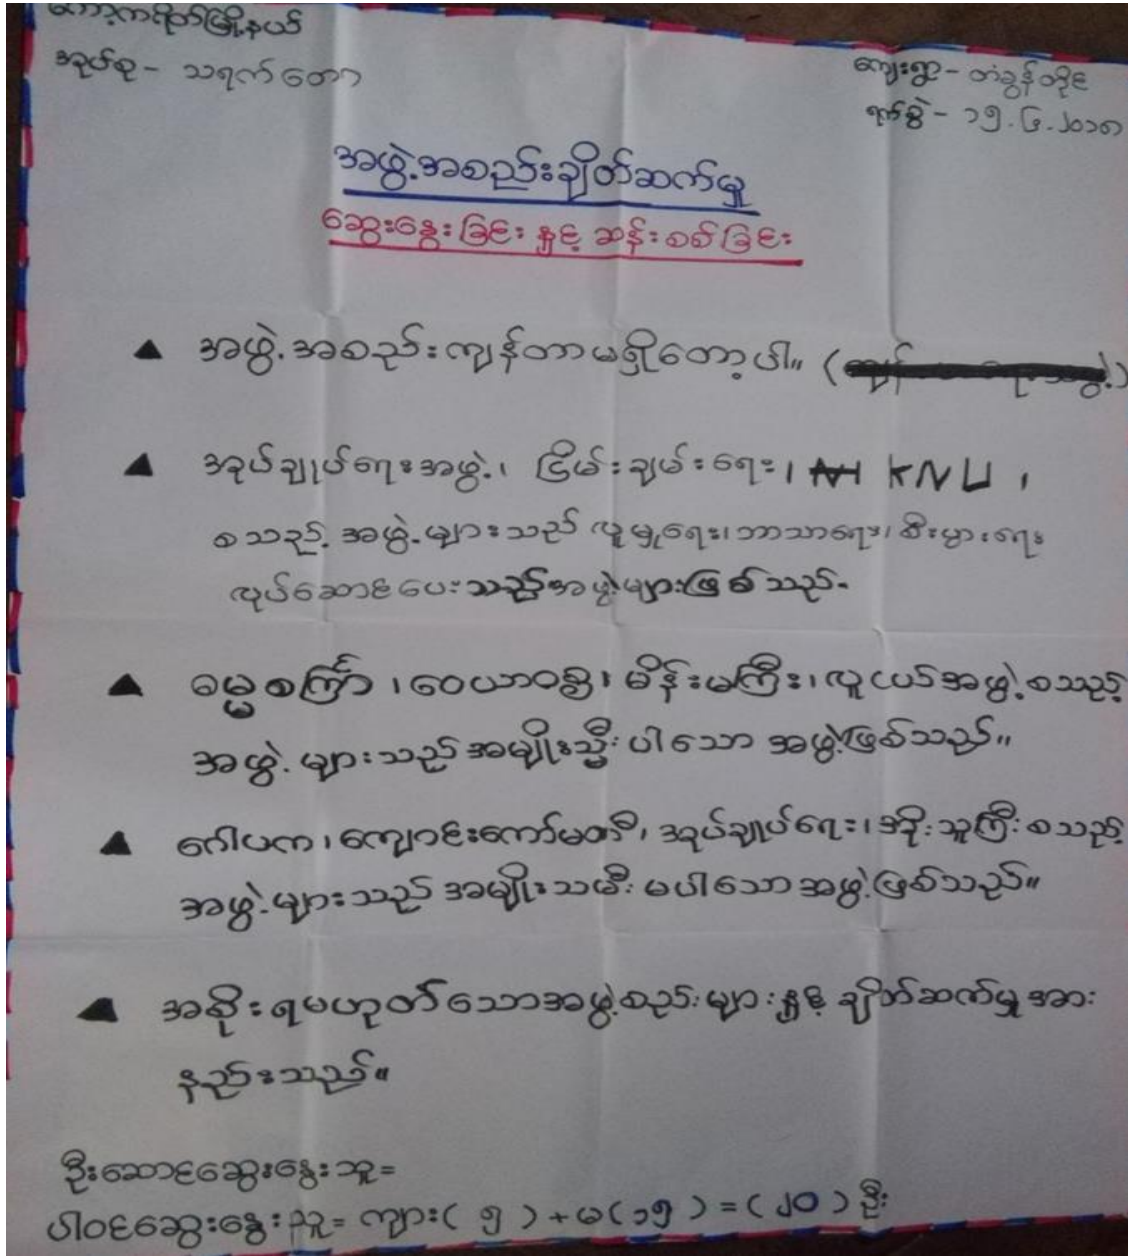 ကော့ကရိတ်မြို့နယ်
အုပ်စု - သရက်တော
ကျေးရွာ - တံခွန်တိုင်
ရက်စွဲ - ၁၅.၆.၂၀၁၈
အဖွဲ့အစည်းချိတ်ဆက်မှု
ဆွေးနွေးခြင်း နှင့် ဆန်းစစ်ခြင်း
▲ အဖွဲ့အစည်းကျန်တာမရှိတော့ပါ။ (
▲ အုပ်ချုပ်ရေးအဖွဲ့၊ ငြိမ်းချမ်းရေး၊ KNU ၊
စသည့် အဖွဲ့များသည် လူမှုရေး၊ဘာသာရေး၊ စီးပွားရေး
လုပ်ဆောင်ပေးသည့်အဖွဲ့များဖြစ်သည်-
▲ ဓမ္မစကြာ၊ ဝေယာဝစ္စ၊ မိန်းမကြီး၊ လူငယ်အဖွဲ့ စသည့်
အဖွဲ့များသည် အမျိုးသ္မီးပါသော အဖွဲ့ဖြစ်သည်။
▲ ဂေါပက၊ ကျောင်းကော်မတီ၊ အုပ်ချုပ်ရေး၊ အိုးသူကြီး စသည့်
အဖွဲ့များသည် အမျိုးသမီး မပါသော အဖွဲ့ဖြစ်သည်။
▲ အစိုးရမဟုတ်သောအဖွဲ့စည်းများနှင့် ချိတ်ဆက်မှုအား
နည်းသည်။
ဦးဆောင်ဆွေးနွေးသူ=
ပါဝင်ဆွေးနွေးသူ= ကျား( ၅ ) + မ( ၁၅ ) = ( ၂၀ ) ဦး